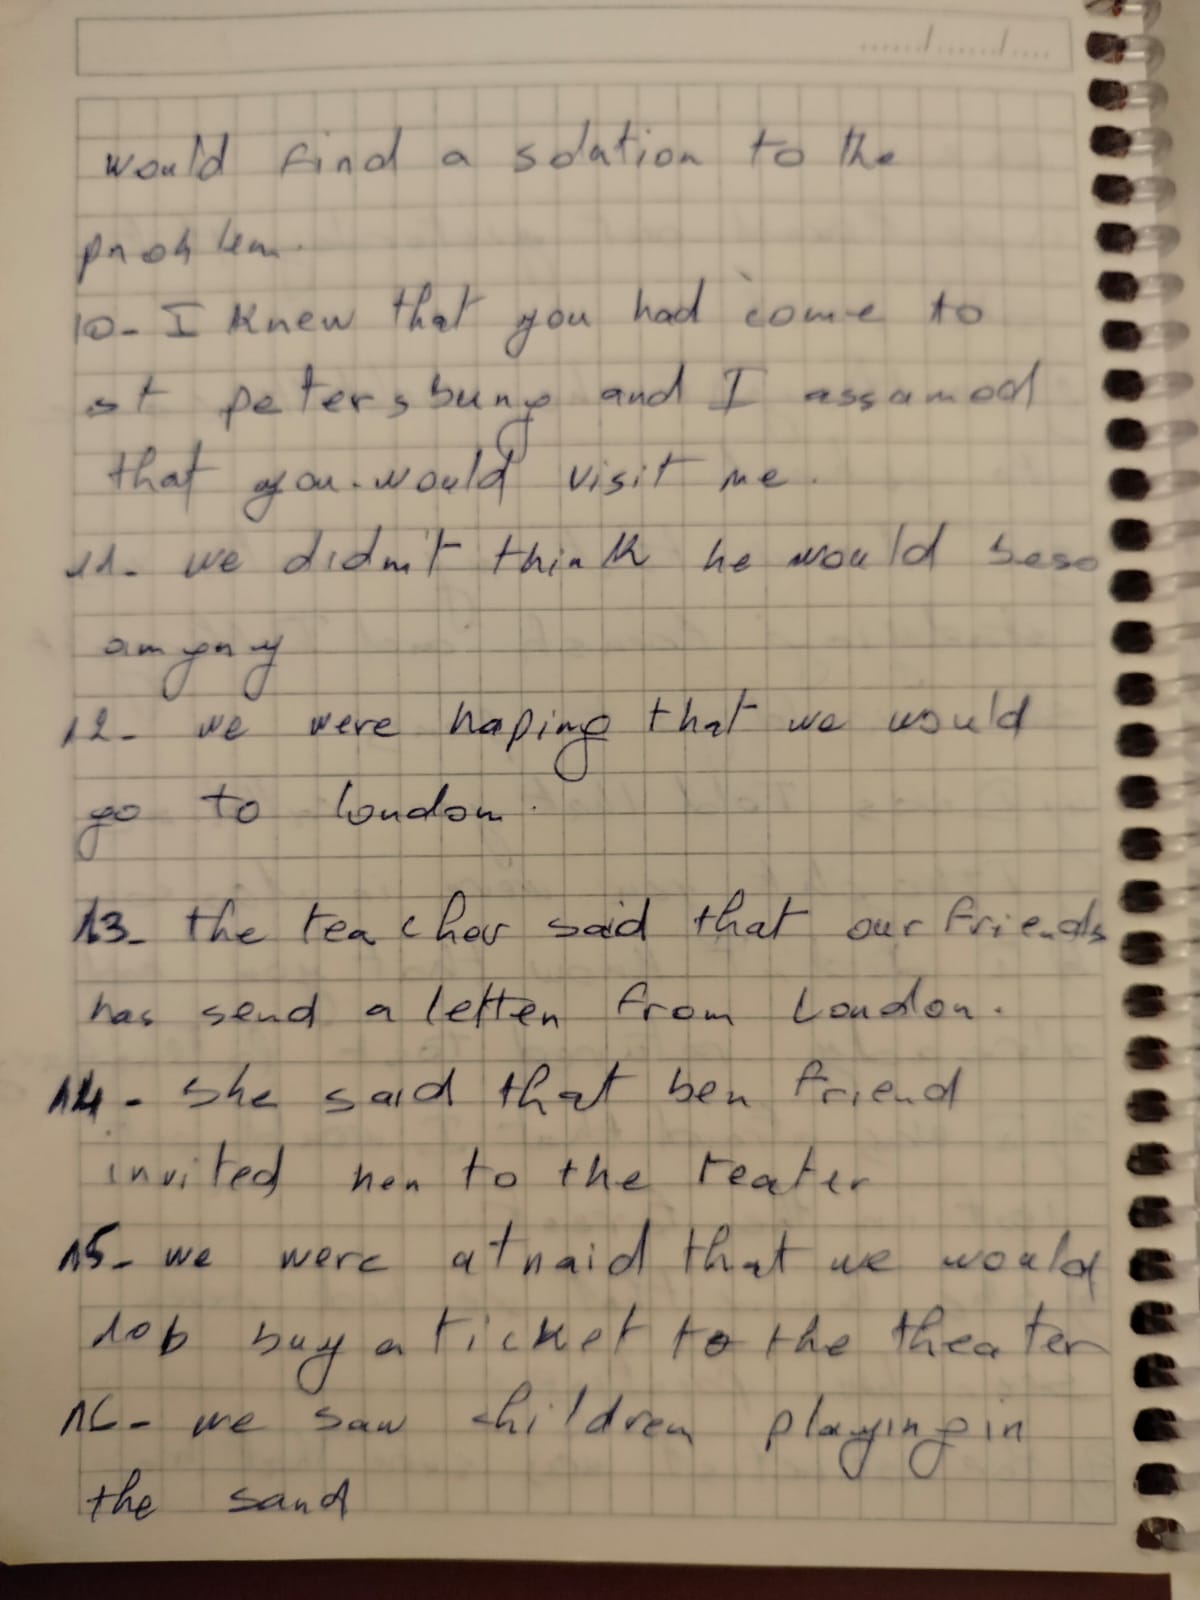 would find a solution to the
problem.
10- I knew that you had come to
st petersburg and I assamed
that you would visit me.
11- we didn't think he would beso
amgny
12- we were hoping that we would
go to london.
13- the teacher said that our friends
has send a letter from London.
14- she said that ben friend
invited her to the teater
15- we were afraid that we would
not buy a ticket to the theater
16- we saw children playing in
the sand